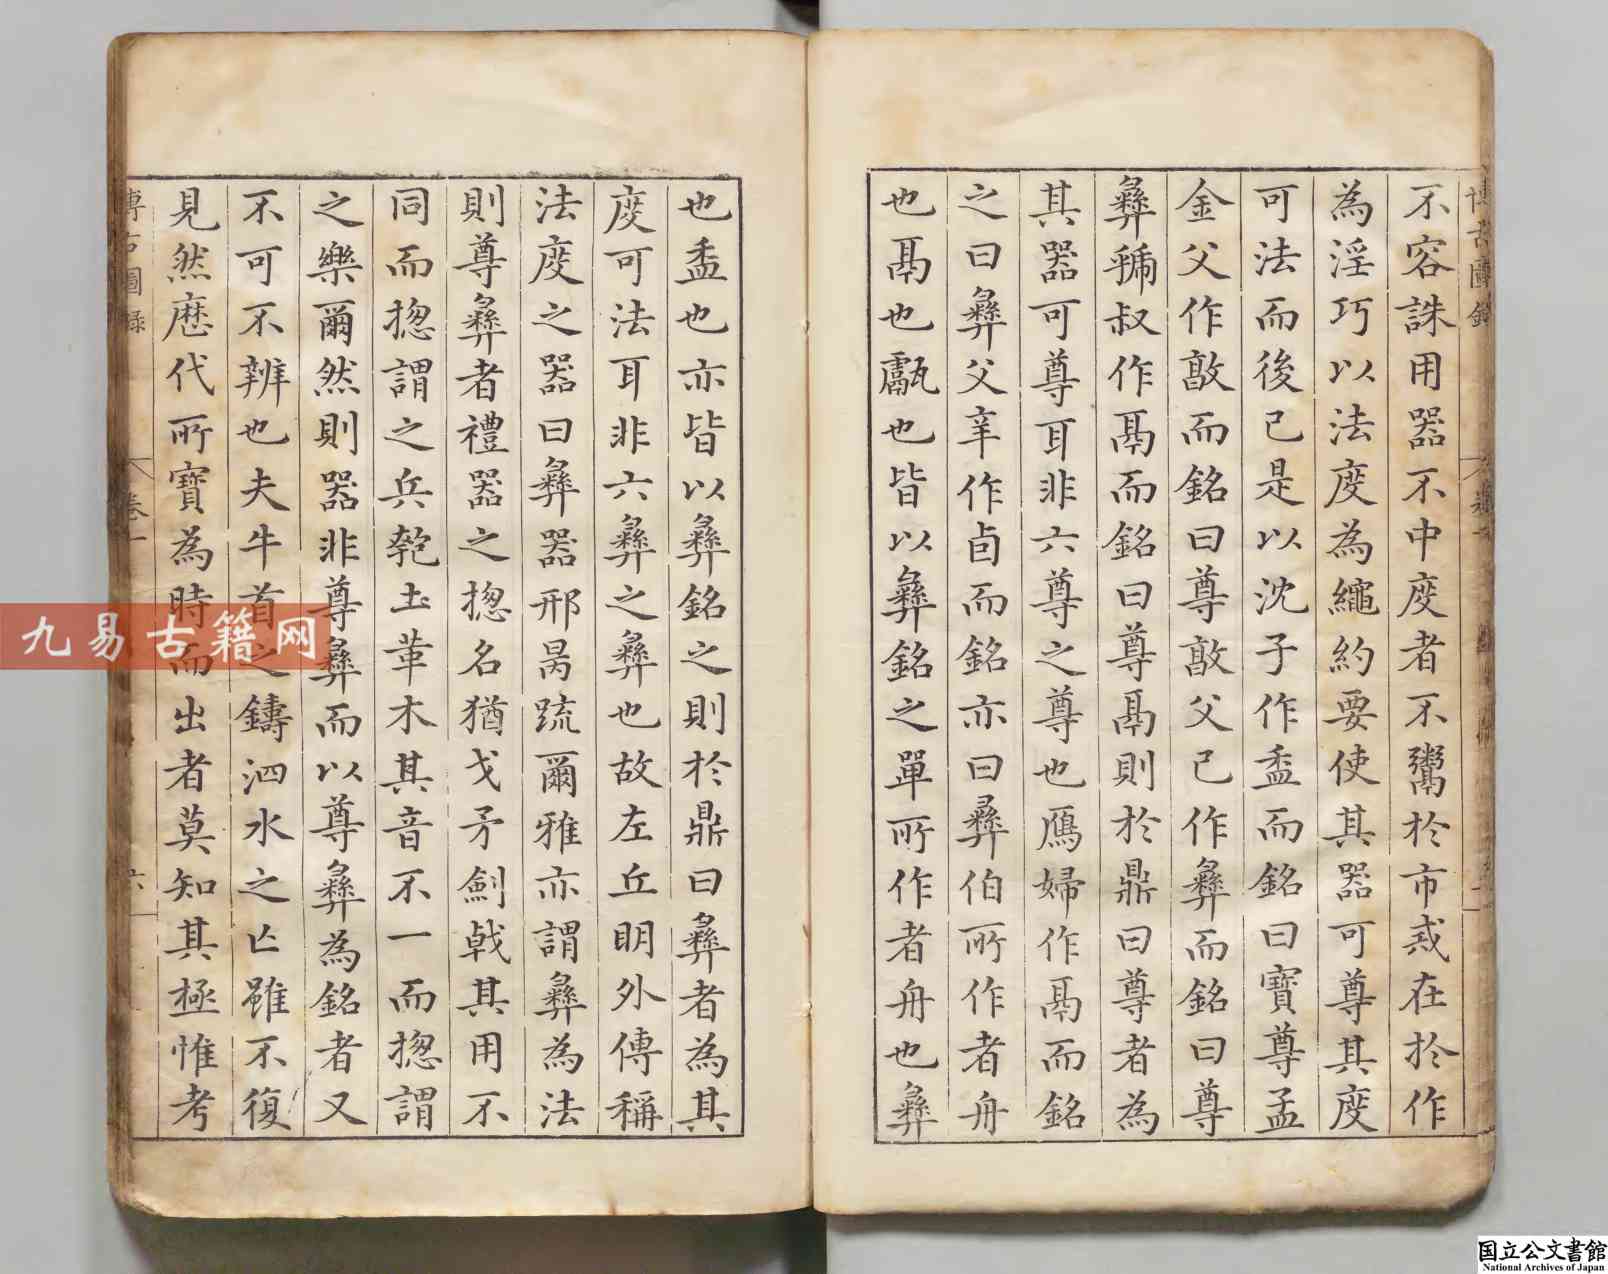 不容誅用器不中度者不鬻於市戒在於作
為淫巧以法度為繩約要使其器可尊其度
可法而後已是以沈子作盉而銘曰寶尊盂
金父作敦而銘曰尊敦父己作彝而銘曰尊
彝虢叔作鬲而銘曰尊鬲則於鼎曰尊者為
其器可尊耳非六尊之尊也鴈婦作鬲而銘
之曰彝父辛作卣而銘亦曰彝伯所作者舟
也鬲也甗也皆以彝銘之單所作者舟也彝
也盉也亦皆以彝銘之則於鼎曰彝者為其
度可法耳非六彝之彝也故左丘明外傳稱
法度之器曰彝器邢昺疏爾雅亦謂彝為法
則尊彝者禮器之揔名猶戈矛劍戟其用不
同而揔謂之兵匏土革木其音不一而揔謂
之樂爾然則器非尊彝而以尊彝為銘者又
不可不辨也夫牛首之鑄泗水之亡雖不復
見然歷代所寶為時而出者莫知其極惟考
博古圖錄
卷一
六
九易古籍网
国立公文書館
National Archives of Japan